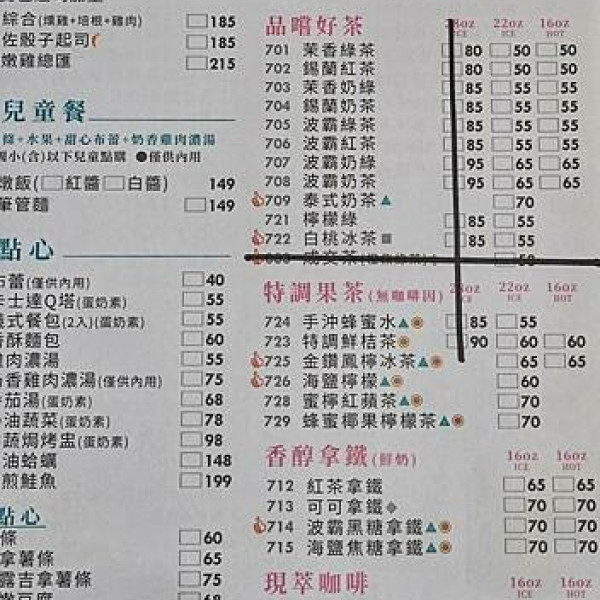 綜合(燻雞+培根+雞肉) 185
佐骰子起司 185
嫩雞總匯 215
兒童餐
條+水果+甜心布蕾+奶香雞肉濃湯
小(含)以下兒童點購 ●僅供內用
燉飯(□紅醬 □白醬) 149
筆管麵 149
點心
布蕾(僅供內用) 40
卡士達Q塔(蛋奶素) 55
式餐包(2入)(蛋奶素) 55
香酥麵包 60
肉濃湯 55
奶香雞肉濃湯(僅供內用) 75
番茄湯(蛋奶素) 68
油蔬菜(蛋奶素) 78
蔬焗烤盅(蛋奶素) 98
油蛤蠣 148
煎鮭魚 199
點心
條 60
拿薯條 65
露吉拿薯條 75
嫩豆腐 68
品嚐好茶 28oz ICE 22oz ICE 16oz HOT
701 茉香綠茶 80 50 50
702 錫蘭紅茶 80 50 50
703 茉香奶綠 85 55 55
704 錫蘭奶茶 85 55 55
705 波霸綠茶 85 55 55
706 波霸紅茶 85 55 55
707 波霸奶綠 95 65 65
708 波霸奶茶 95 65 65
709 泰式奶茶▲ 70
721 檸檬綠 85 55
722 白桃冰茶■ 85 55
特調果茶(無咖啡因) 28oz ICE 22oz ICE 16oz HOT
724 手沖蜂蜜水▲ 85 55
723 特調鮮桔茶 90 60 60
725 金鑽鳳檸冰茶▲ 65 65
726 海鹽檸檬▲ 60
728 蜜檸紅蘋茶▲ 70
729 蜂蜜椰果檸檬茶▲ 70
香醇拿鐵(鮮奶) 16oz ICE 16oz HOT
712 紅茶拿鐵 65 65
713 可可拿鐵◆ 70 70
714 波霸黑糖拿鐵▲ 70 70
715 海鹽焦糖拿鐵▲ 70 70
現萃咖啡 16oz 16oz